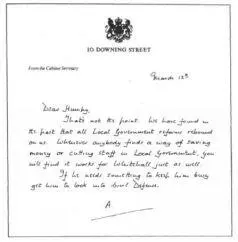 10 DOWNING STREET
From the Cabinet Secretary
March 12th
Dear Humpy,
That's not the point. We have found in
the past that all Local Government reforms rebound
on us. Whenever anybody finds a way of saving
money or cutting staff in Local Government, you
will find it works for Whitehall just as well.
If he needs something to keep him busy
get him to look into Civil Defence.
A